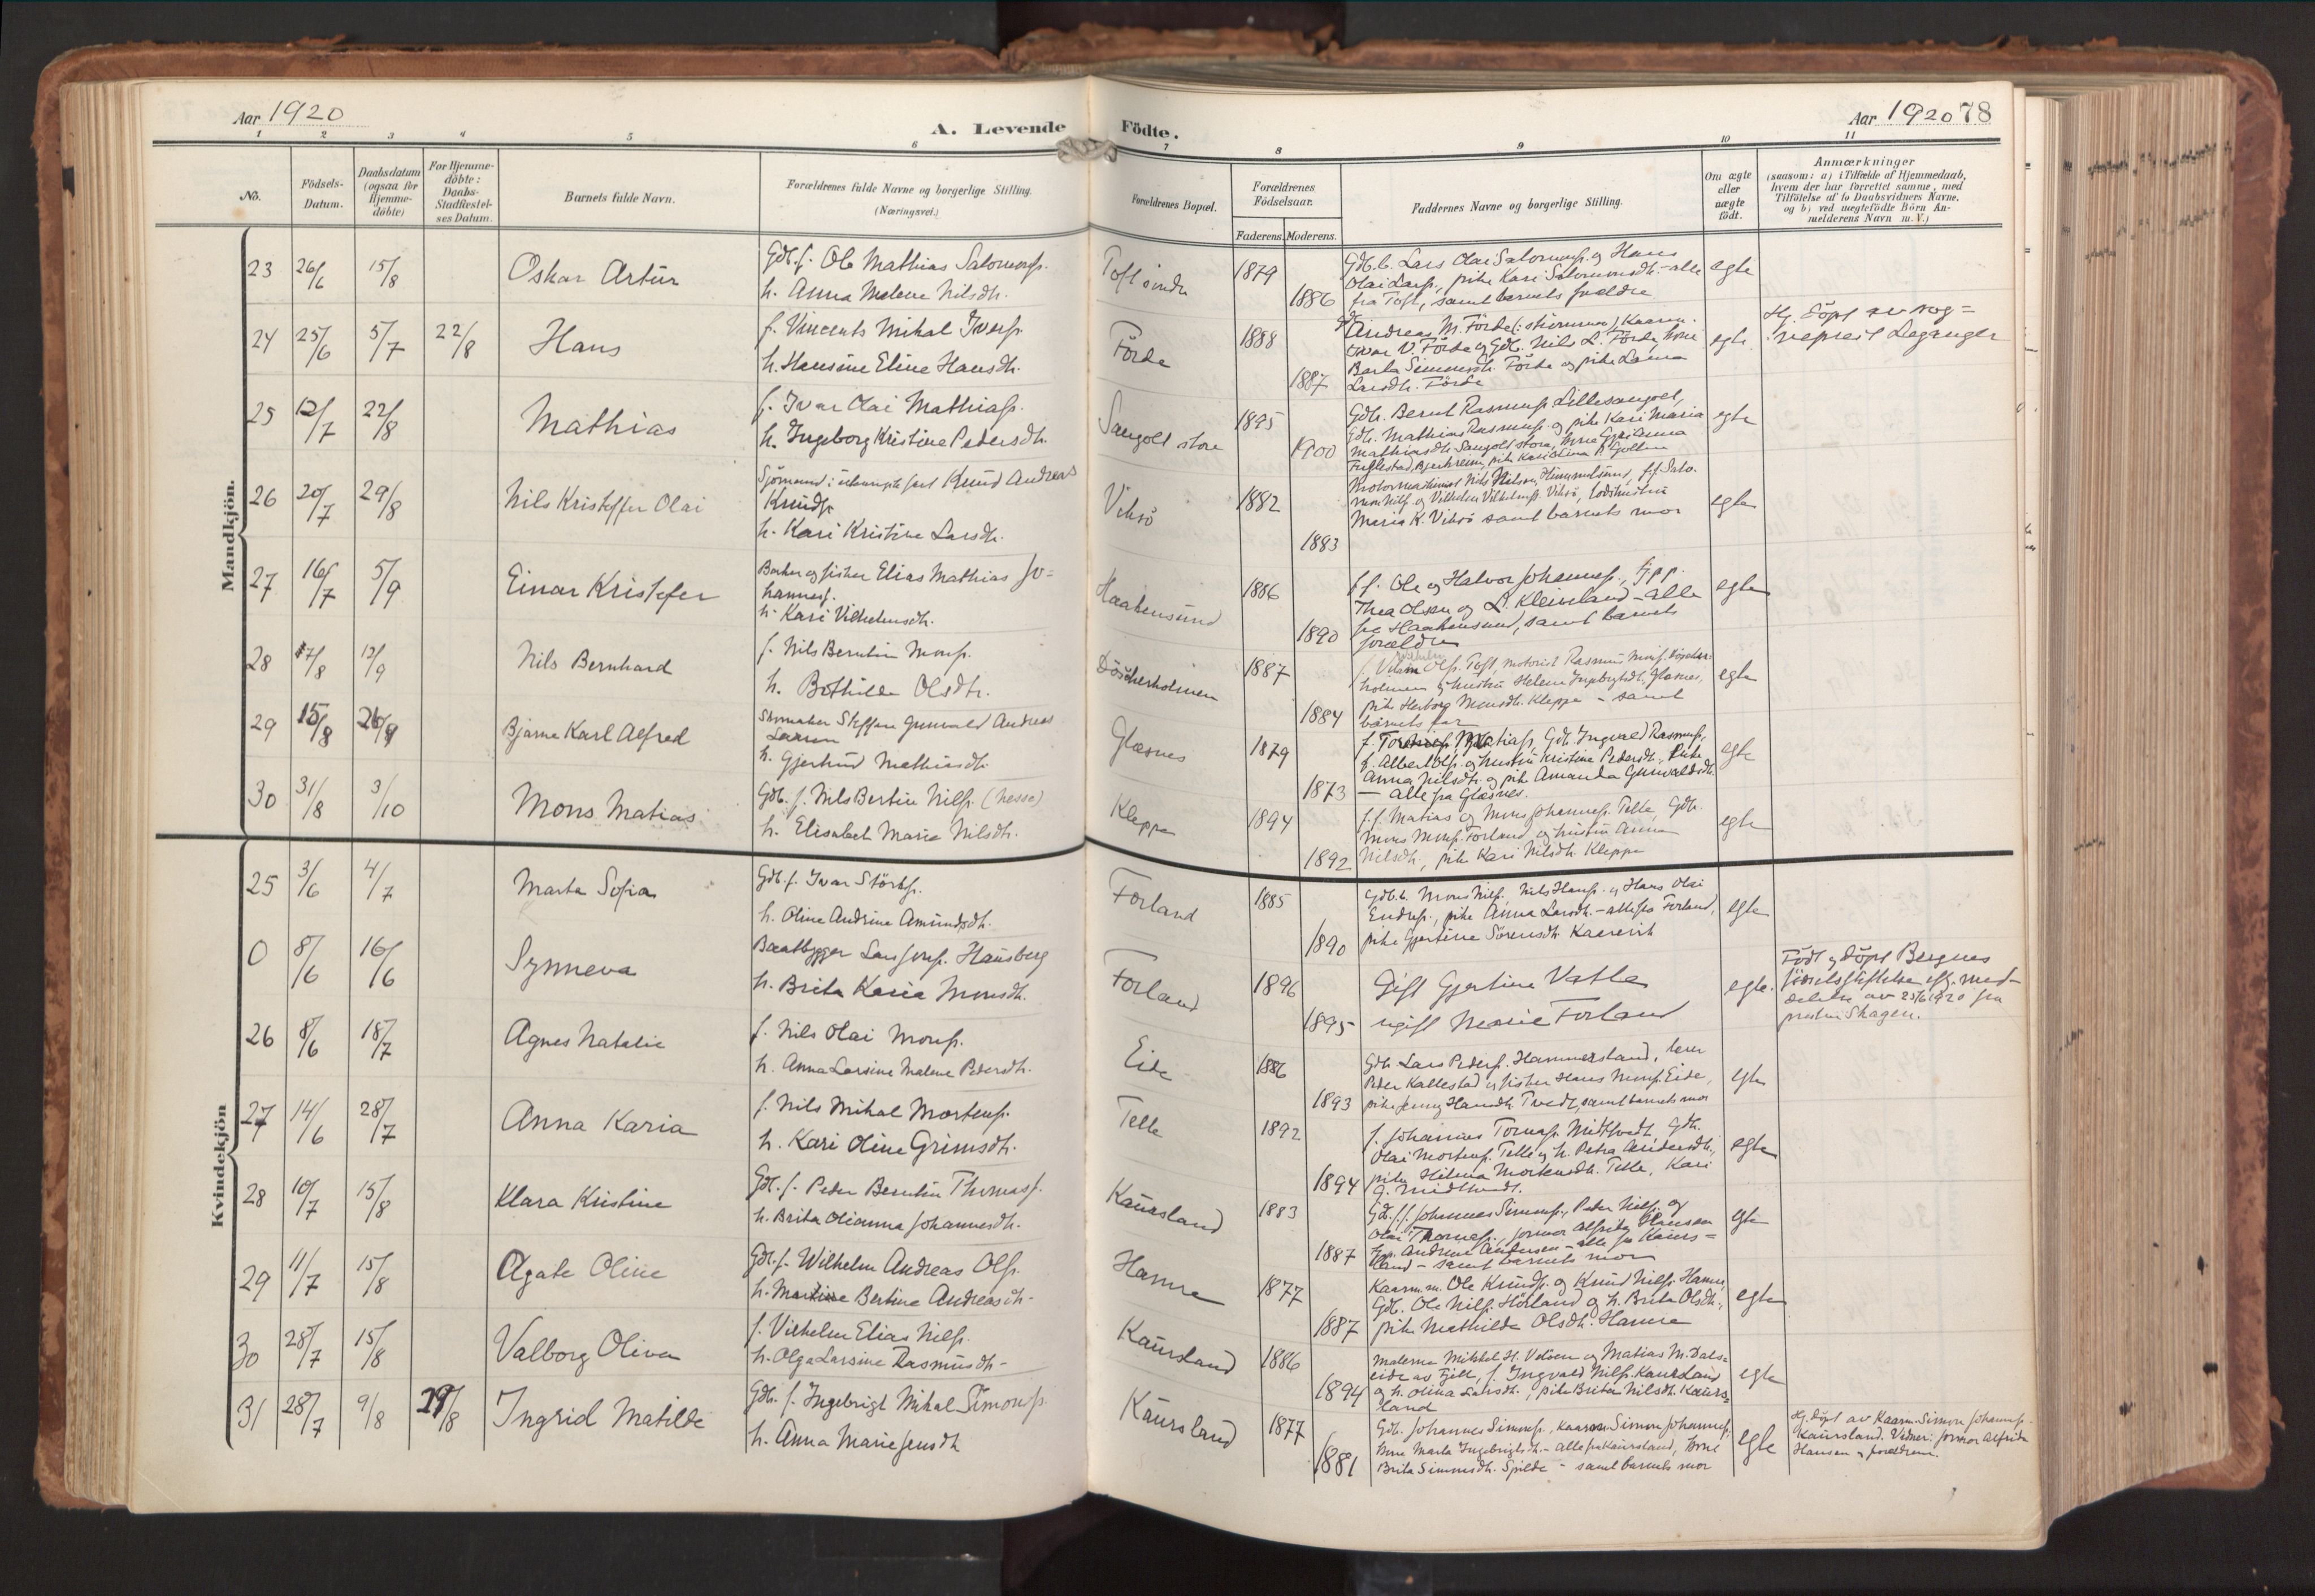 Aar 1920
A. Levende
Födte.
Aar 1920
78
1 2 3 4 5 6 7 8 9 10 11
No.
Födsels-
Datum.
Daabsdatum
(ogsaa for
Hjemme-
döbte)
For Hjemme-
döbte:
Daabs-
Stadfæstel-
ses Datum.
Barnets fulde Navn.
Forældrenes fulde Navne og borgerlige Stilling.
(Næringsvei.)
Forældrenes Bopæl.
Forældrenes
Födselsaar.
Faderens. Moderens.
Faddernes Navne og borgerlige Stilling.
Om ægte
eller
uægte
födt.
Anmærkninger
(saasom: a) i Tilfælde af Hjemmedaab,
hvem der har forrettet samme, med
Tilföielse af to Daabsvidners Navne,
og b) ved uægtefödte Börn An-
melderens Navn m. V.)
Mandkjön.
23 26/6 15/8 Oskar Artur
Gdb. f. Ole Mathias Salomonss.
h. Anna Malene Nilsdtr.
Toft indre 1879
1886
Gdb.b. Lars Olai Salomonss. og Hans
Olai Larss., pike Kari Salomonsdtr. - alle
fra Toft, samt barnets forældre
egte
24 25/6 5/7 22/8 Hans
f. Vincents Mikal Iverss.
h. Hansine Eline Hansdtr.
Förde 1888
1887
Andreas M. Förde
Iver V. Förde og Gdb. Nils L. Förde, kone
Berta Simonsdtr. Förde og pike Laura
Larsdtr. Förde
egte
Hj. döpt av sog=
neprest Leganger
25 12/7 22/8 Mathias
f. Ivar Olai Mathiass.
h. Ingeborg Kristine Pedersdtr.
Sangolt store 1895
1900
Gdb. Bernt Rasmuss. Lillesangolt,
Gdb. Mathias Rasmuss. og pike Kari Maria
Mathiasdtr. Sangolt store,
egte
26 20/7 29/8 Nils Kristoffer Olai
Sjömand i utenrigsfart Knud Andreas
Knudss.
h. Kari Kristine Larsdtr.
Viksö 1882
1883
Motormaskinist Nils Nilsen,
Vilhelm Vilhelmss. Viksö,
Maria K. Viksö samt barnets mor
egte
27 16/7 5/9 Einar Kristofer
Baker og fisker Elias Mathias Jo=
hanness.
h. Kari Vilhelmsdtr.
Haakonsund 1886
1890
f.f. Ole og Halvor Johanness.,
Thea Olsen og L. Kleiveland - alle
fra Haakonsund, samt barnets
forældre
egte
28 17/8 12/9 Nils Bernhard
f. Nils Berntin Monss.
h. Bothilde Olsdtr.
Döskerholmen 1887
1884
Olss. Toft, motorist Rasmus Monss. Dösker=
holmen og hustru Helene Ingebrigtsdtr. Glesnes,
pike Herborg Monsdtr. Kleppe - samt
barnets far
egte
29 15/8 26/9 Bjarne Karl Alfred
Skomaker Steffen Gunvald Andreas
Larsen
h. Gjertrud Mathiasdtr.
Glesnes 1879
1873
Gdb. Ingvald Rasmuss.
h. Albert Olss. og hustru Kristine Pedersdtr. Pike
Anna Nilsdtr. og pike Amanda Gunvaldsdtr.
— alle fra Glesnes.
egte
30 31/8 3/10 Mons Matias
Gdb. f. Nils Bertin Nilss. (Nesse)
h. Elisabet Marie Nilsdtr.
Kleppe 1894
1892
f.f. Matias og Mons Johanness. Telle, Gdb.
Mons Monss. Forland, og hustru Anna
Nilsdtr., pike Kari Nilsdtr. Kleppe
egte
Kvindekjön
25 3/6 4/7 Marta Sofia
Gdb. f. Ivar Störks.
h. Oline Andrine Amundsdtr.
Forland 1885
1890
Gdb.b. Mons Nilss., Nils Hanss. og Hans Olai
Endress., pike Anna Larsdtr. - alle fra Forland,
pike Gjertine Sörensdtr. Kaarevik
egte
0 8/6 16/6 Synneva
Baatbygger Lars Jonss. Hausberg
h. Brita Karia Monsdtr.
Forland 1896
1895
Gift Gjertine Vatle
ugift Marie Forland
egte.
Födt og döpt Bergens
födselsstiftelse efter med=
delelse av 25/6 1920 fra
presten Skagen.
26 8/6 18/7 Agnes Natalie
f. Nils Olai Monss.
h. Anna Larsine Malene Pedersdtr.
Eide 1886
1893
Gdb. Lars Pederss. Hammersland, lærer
Peder Kallestad og fisker Hans Monss. Eide,
pike Jenny Hansdtr. Tvedt, samt barnets mor
egte
27 14/6 28/7 Anna Karia
f. Nils Mikal Mortenss.
h. Kari Oline Grimsdtr.
Telle 1892
1894
f. Johannes Tomass. Midttvedt, Gdb.
Olai Mortenss. Telle og h. Petra Andersdtr.,
pike Helena Mortensdtr. Telle, Kari
G. Midttvedt.
egte
28 10/7 15/8 Klara Kristine
Gdb. f. Peder Berntin Thomass.
h. Brita Olianna Johannesdtr.
Kaursland 1883
1887
Gdb. f.f. Johannes Simonss., Peder Nilss. og
Olai Thomass., jormor Alfrida Hansen
Andrine Andersen - alle fra Kaurs=
land - samt barnets mor
egte
29 11/7 15/8 Agate Oline
Gdb. f. Wilhelm Andreas Olss.
h. Martine Bertine Andreasdtr.
Hamre 1877
1887
Kaarm.m. Ole Knudss. og Knud Nilss. Hamre,
Gdb. Ole Nilss. Hörland og h. Brita Olsdtr.,
pike Mathilde Olsdtr. Hamre
egte
30 28/7 15/8 Valborg Oliva
f. Vilhelm Elias Nilss.
h. Olga Larsine Rasmusdtr.
Kaursland 1886
1894
Malerne Mikkel H. Veløen og Matias M. Dals=
eide av Fjell, f. Ingvald Nilss. Kaursland
og h. Olina Larsdtr., pike Brita Nilsdtr. Kaurs=
land
egte
31 28/7 9/8 29/8 Ingrid Matilde
Gdb. f. Ingebrigt Mikal Simonss.
h. Anna Marie Jensdtr
Kaursland 1877
1881
Gdb. Johannes Simonss., Kaarm. Simon Johanness.,
kone Marta Ingebrigtsdtr. - alle fra Kaursland, kone
Brita Simonsdtr. Spilde - samt barnets mor
egte
Hj. döpt av Kaarm. Simon Johanness.
Kaursland. Vidner: jormor Alfrida
Hansen og forældrene.